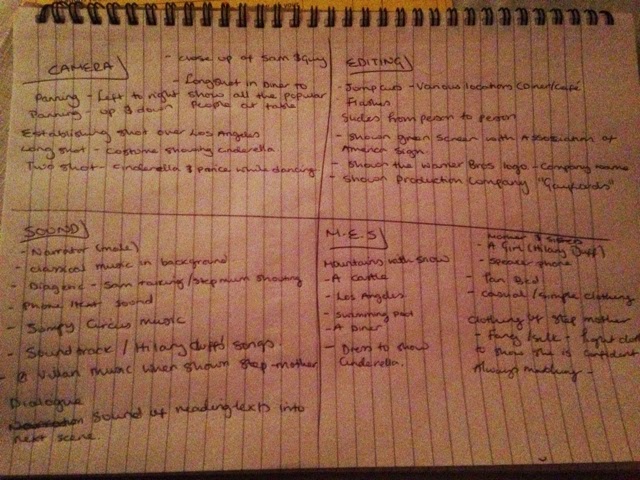 CAMERA
- close up of Sam & Guy
- Longshot in Diner to show all the popular People at table
Panning - Left to right
Panning - up & down
Establishing shot over Los Angeles
Long shot - costume showing cinderella
Two shot - cinderella & prince while dancing.
EDITING
- Jump cuts - Various locations Corner/café
- Flashes
Slides from person to person
- Shown green screen with Association of America Sign.
- Shown the Warner Bros logo - Company name
- Shown Production Company "Gaylords"
SOUND
- Narrator (male)
- classical music in background
- Diagenic - Sam talking / Stepmum shouting
- Phone / text sound
- Jumpy Circus music
- Soundtrack / Hilary Duff's songs.
- Villan music when shown Step-mother
Dialogue
Sound of reading texts into next scene.
M.E.S
Mountains with snow
- A castle
- Los Angeles
- swimming pool
- A Diner
- Dress to show Cinderella.
- A Girl (Hilary Duff)
- Speaker phone
- Pan Bed
- casual / simple clothing
clothing of step mother
- Fancy / silk - tight
to show she is confident
Always matching -